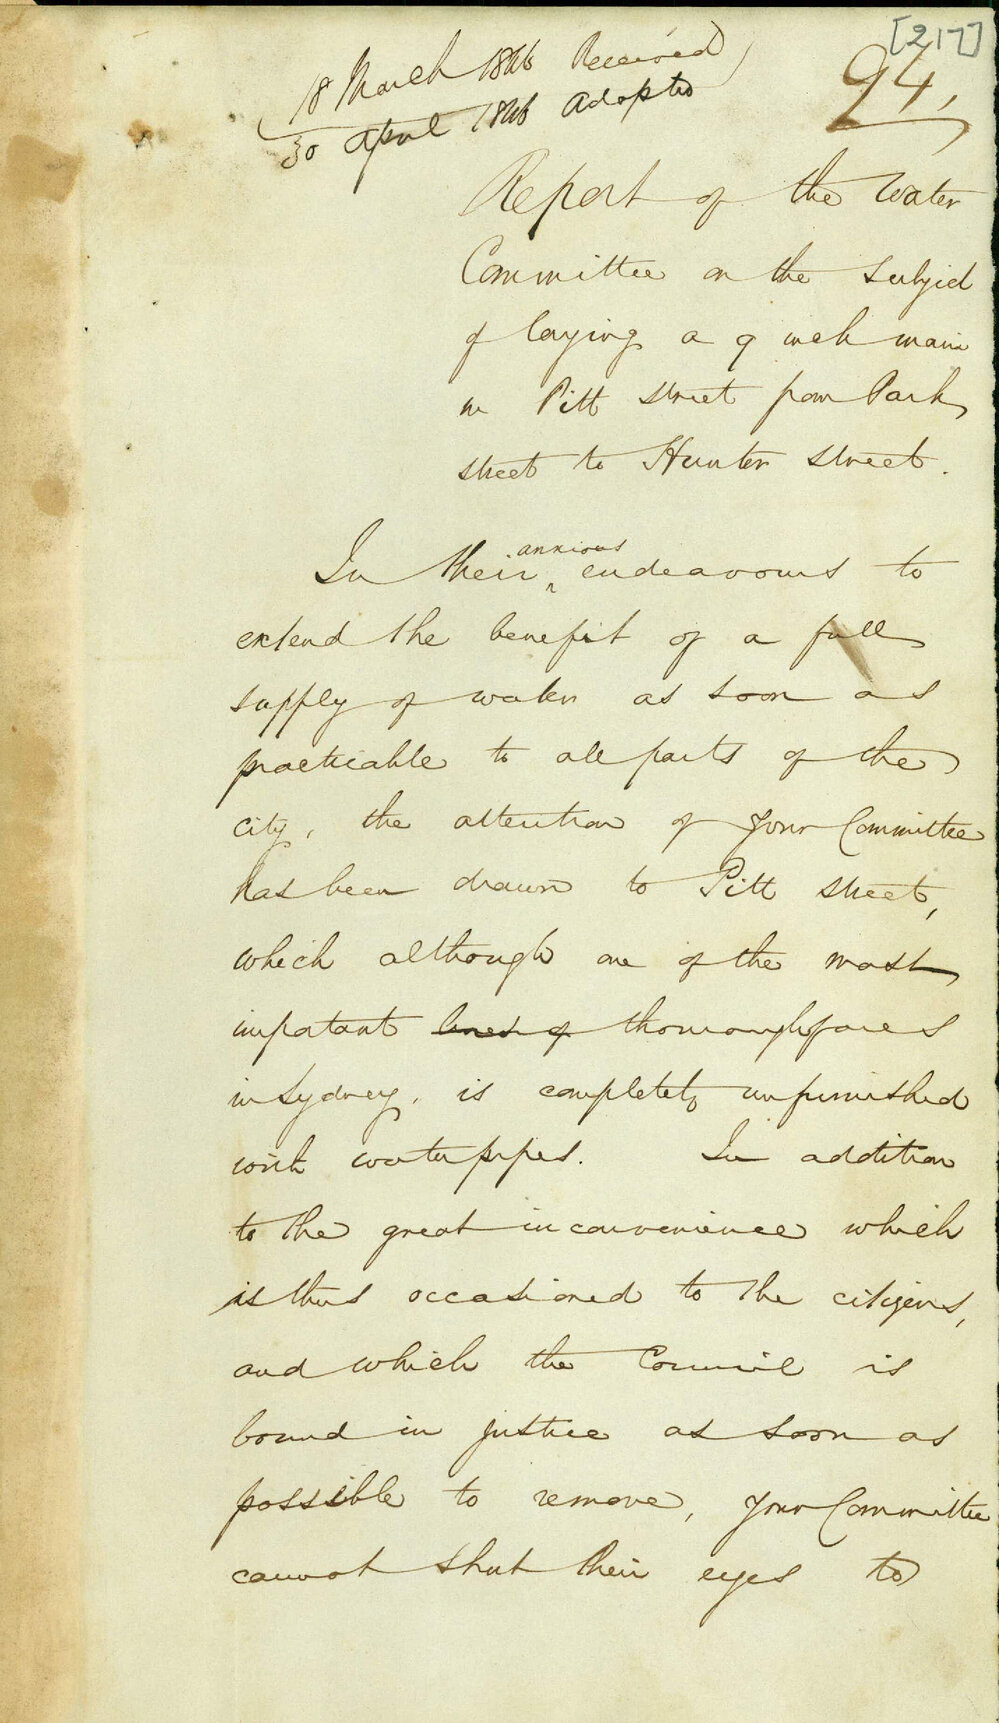 [217]
94,
18 March 1846 Received
30 April 1846 Adopted
Report of the Water
Committee on the subject
of laying a 9 inch main
in Pitt Street from Park
street to Hunter street.
In their anxious endeavours to
extend the benefit of a full
supply of water as soon as
practicable to all parts of the
city, the attention of your Committee
has been drawn to Pitt street,
which although one of the most
important lines of thoroughfares
in Sydney, is completely unfurnished
with water pipes. In addition
to the great inconvenience which
is thus occasioned to the citizens,
and which the Council is
bound in justice as soon as
possible to remove, your Committee
cannot shut their eyes to